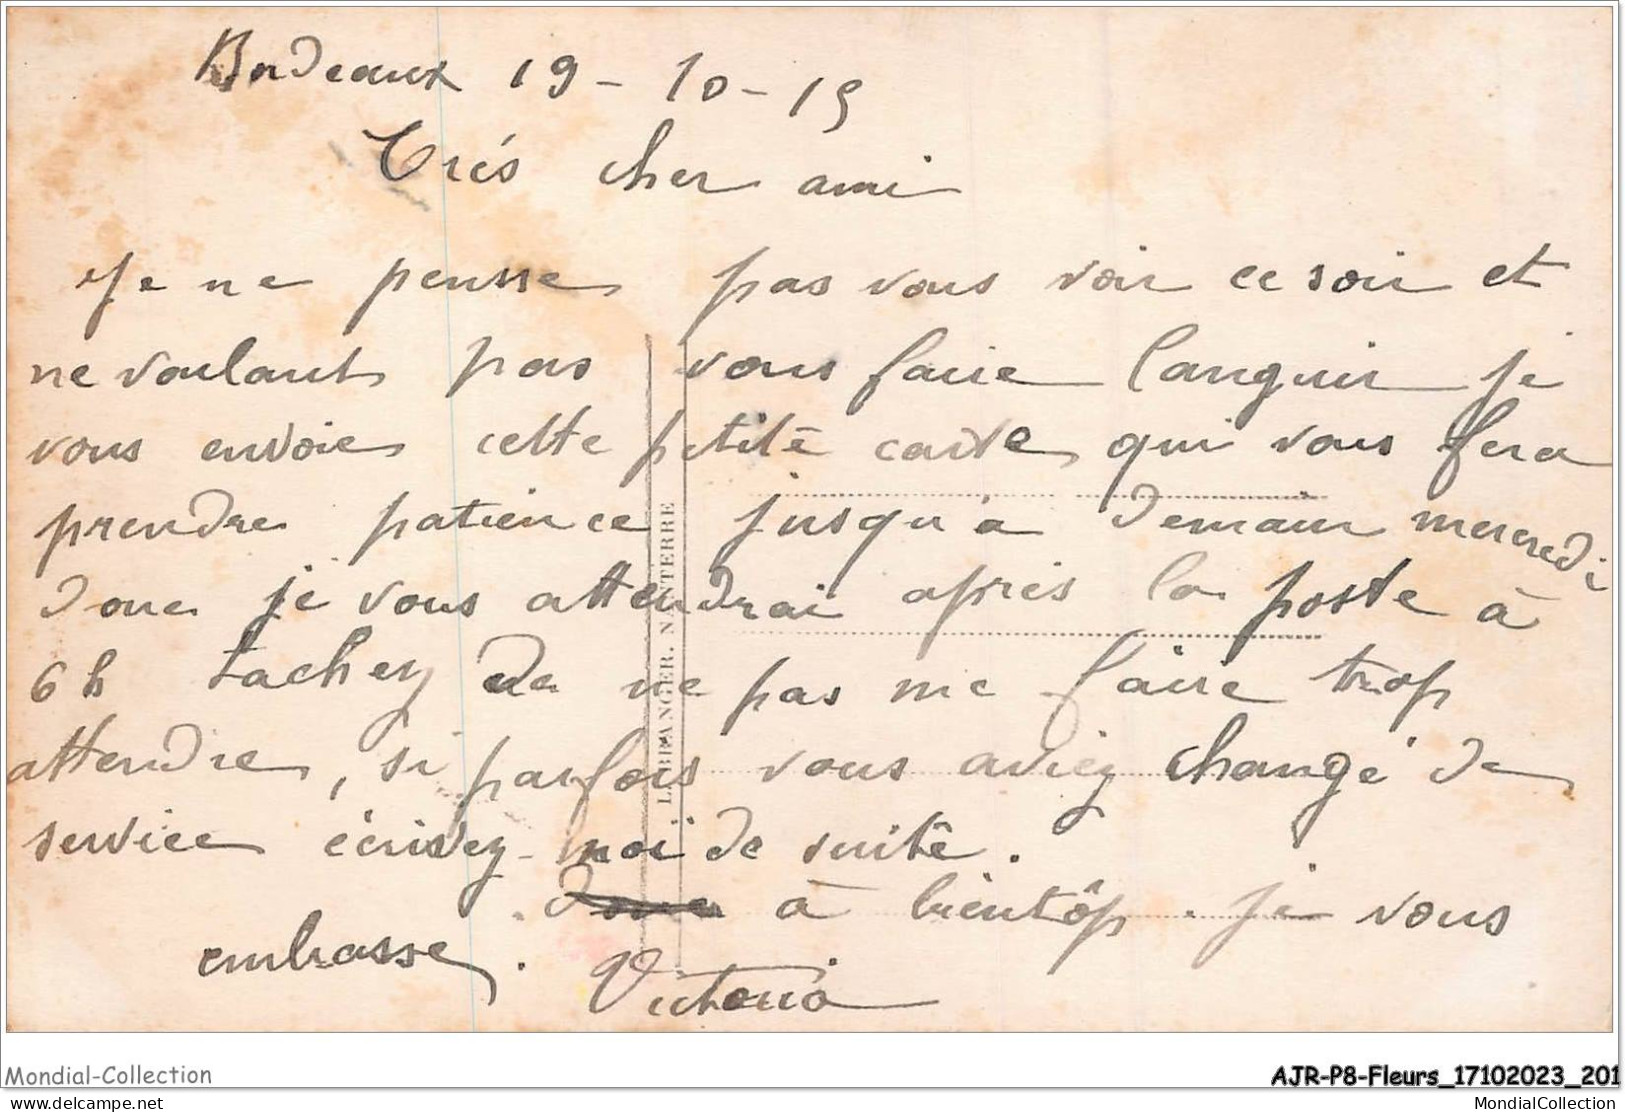 Bordeaux 19-10-15
Trés cher ami
Je ne pensse pas vous voir ce soir et
ne voulant pas vous faire languir je
vous envoie cette petite carte qui vous fera
prendre patience jusqu'a demain mercredi
donc je vous attendrai après la poste à
6h tachez de ne pas me faire trop
attendre, si parfois vous aviez changé de
service écrivez-moi de suite.
donc à bientôp. je vous
embrasse. Victoria
LABRANGER. NANTERRE
Mondial-Collection
AJR-P8-Fleurs_17102023_201
www.delcampe.net
MondialCollection